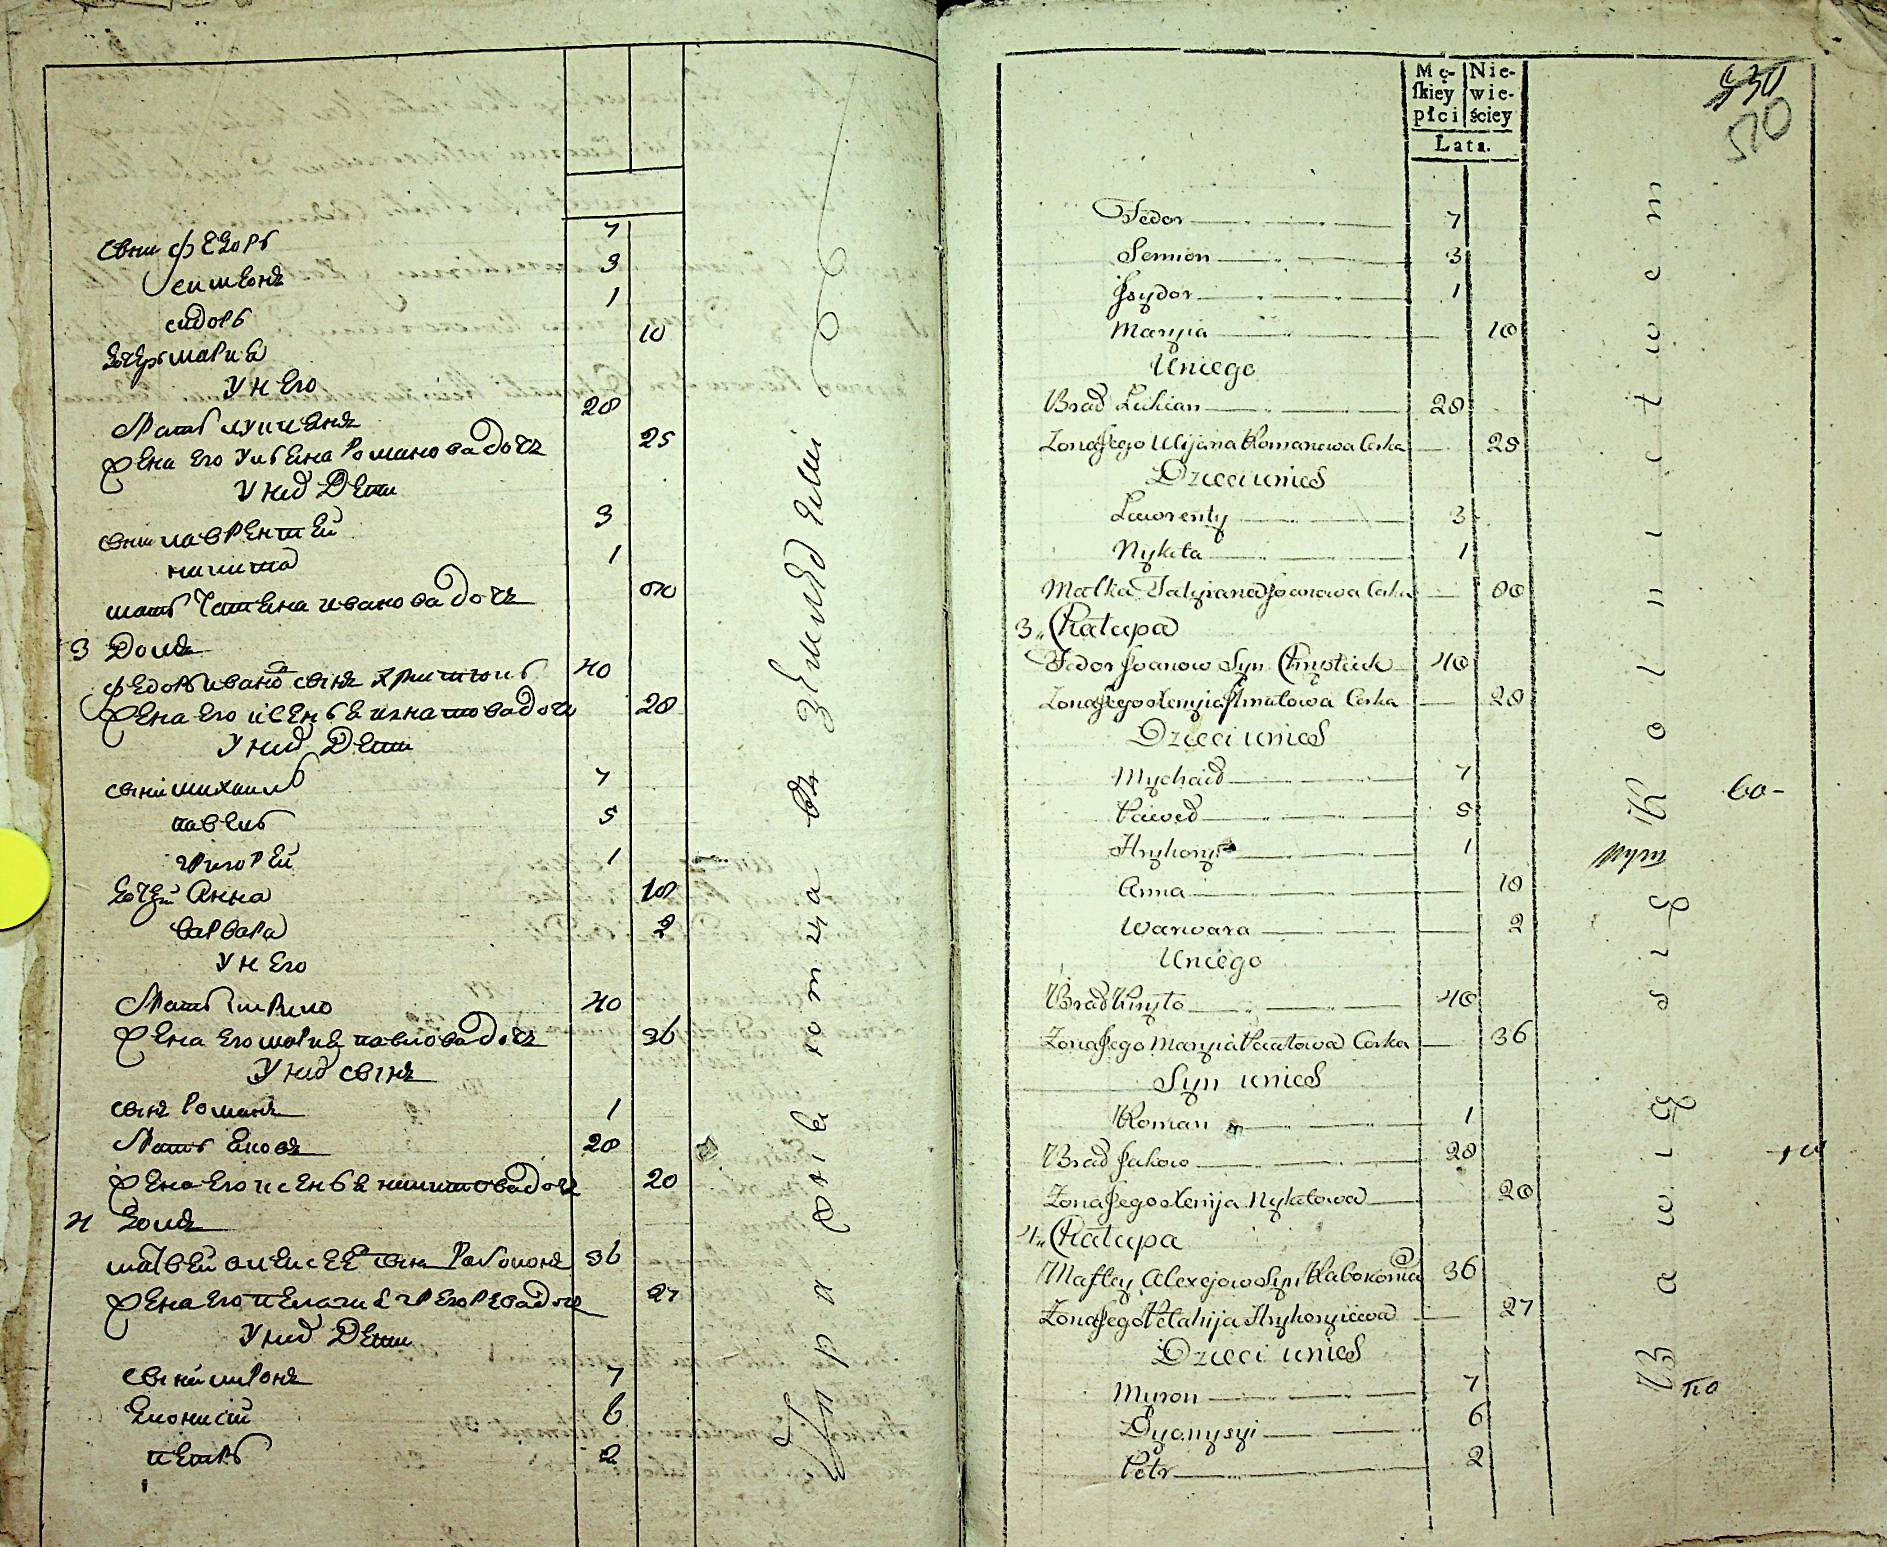 сыны Ѳедоръ 7
Семионъ 3
сидоръ 1
дочерь мария 10
у Него
братъ лукианъ 28
жена его улияна Романова дочь 25
у них Дети
сыны лаврентей 3
никита 1
мать татияна иванова дочь
3 Домъ
федоръ иванов сынъ 40
жена его ксенья игнатова дочь 28
у них Дети
сыны михаилъ 7
павелъ 5
григорей 1
дочери Анна 10
варвара 2
у Него
братъ кирило 40
жена его мария павлова дочь 36
у них сынъ
сынъ Романъ 1
братъ яковъ 28
жена его ксенья никитова дочь 20
4 домъ
матвей алексеев сынъ 36
жена его пелагия григорева дочь 27
у них Дети
сыны миронъ 7
дионисий 6
петръ 2
земледелии
Męskiey płci Niewieściey
Lata.
530
510
Fedor 7
Semion 3
Jzydor 1
Maryia 10
Uniego
Brad Lukian 28
Zona Jego Ulijana Romanowa Corka 25
Dzieci unich
Lawrenty 3
Nykita 1
Matka Tatyiana Joanowa Corka
3. Chałupa
Fedor Joanow Syn 40
Zona Jego Xenyia Ihnatowa Corka 28
Dzieci unich
Mychaid 7
Paweł 5
Hryhory 1
Anna 10
Warwara 2
Uniego
Brad Kiryło 40
Zona Jego Maryia Pawłowa Corka 36
Syn unich
Roman 1
Brad Jakow 28
Zona Jego Xenija Nykitowa 20
4. Chałupa
Maftey Alexejow Syn Rabokonia 36
Zona Jego Pelahija Hryhoryiewa 27
Dzieci unich
Myron 7
Dyonysyi 6
Petr 2
Bawią się Rolnictwem